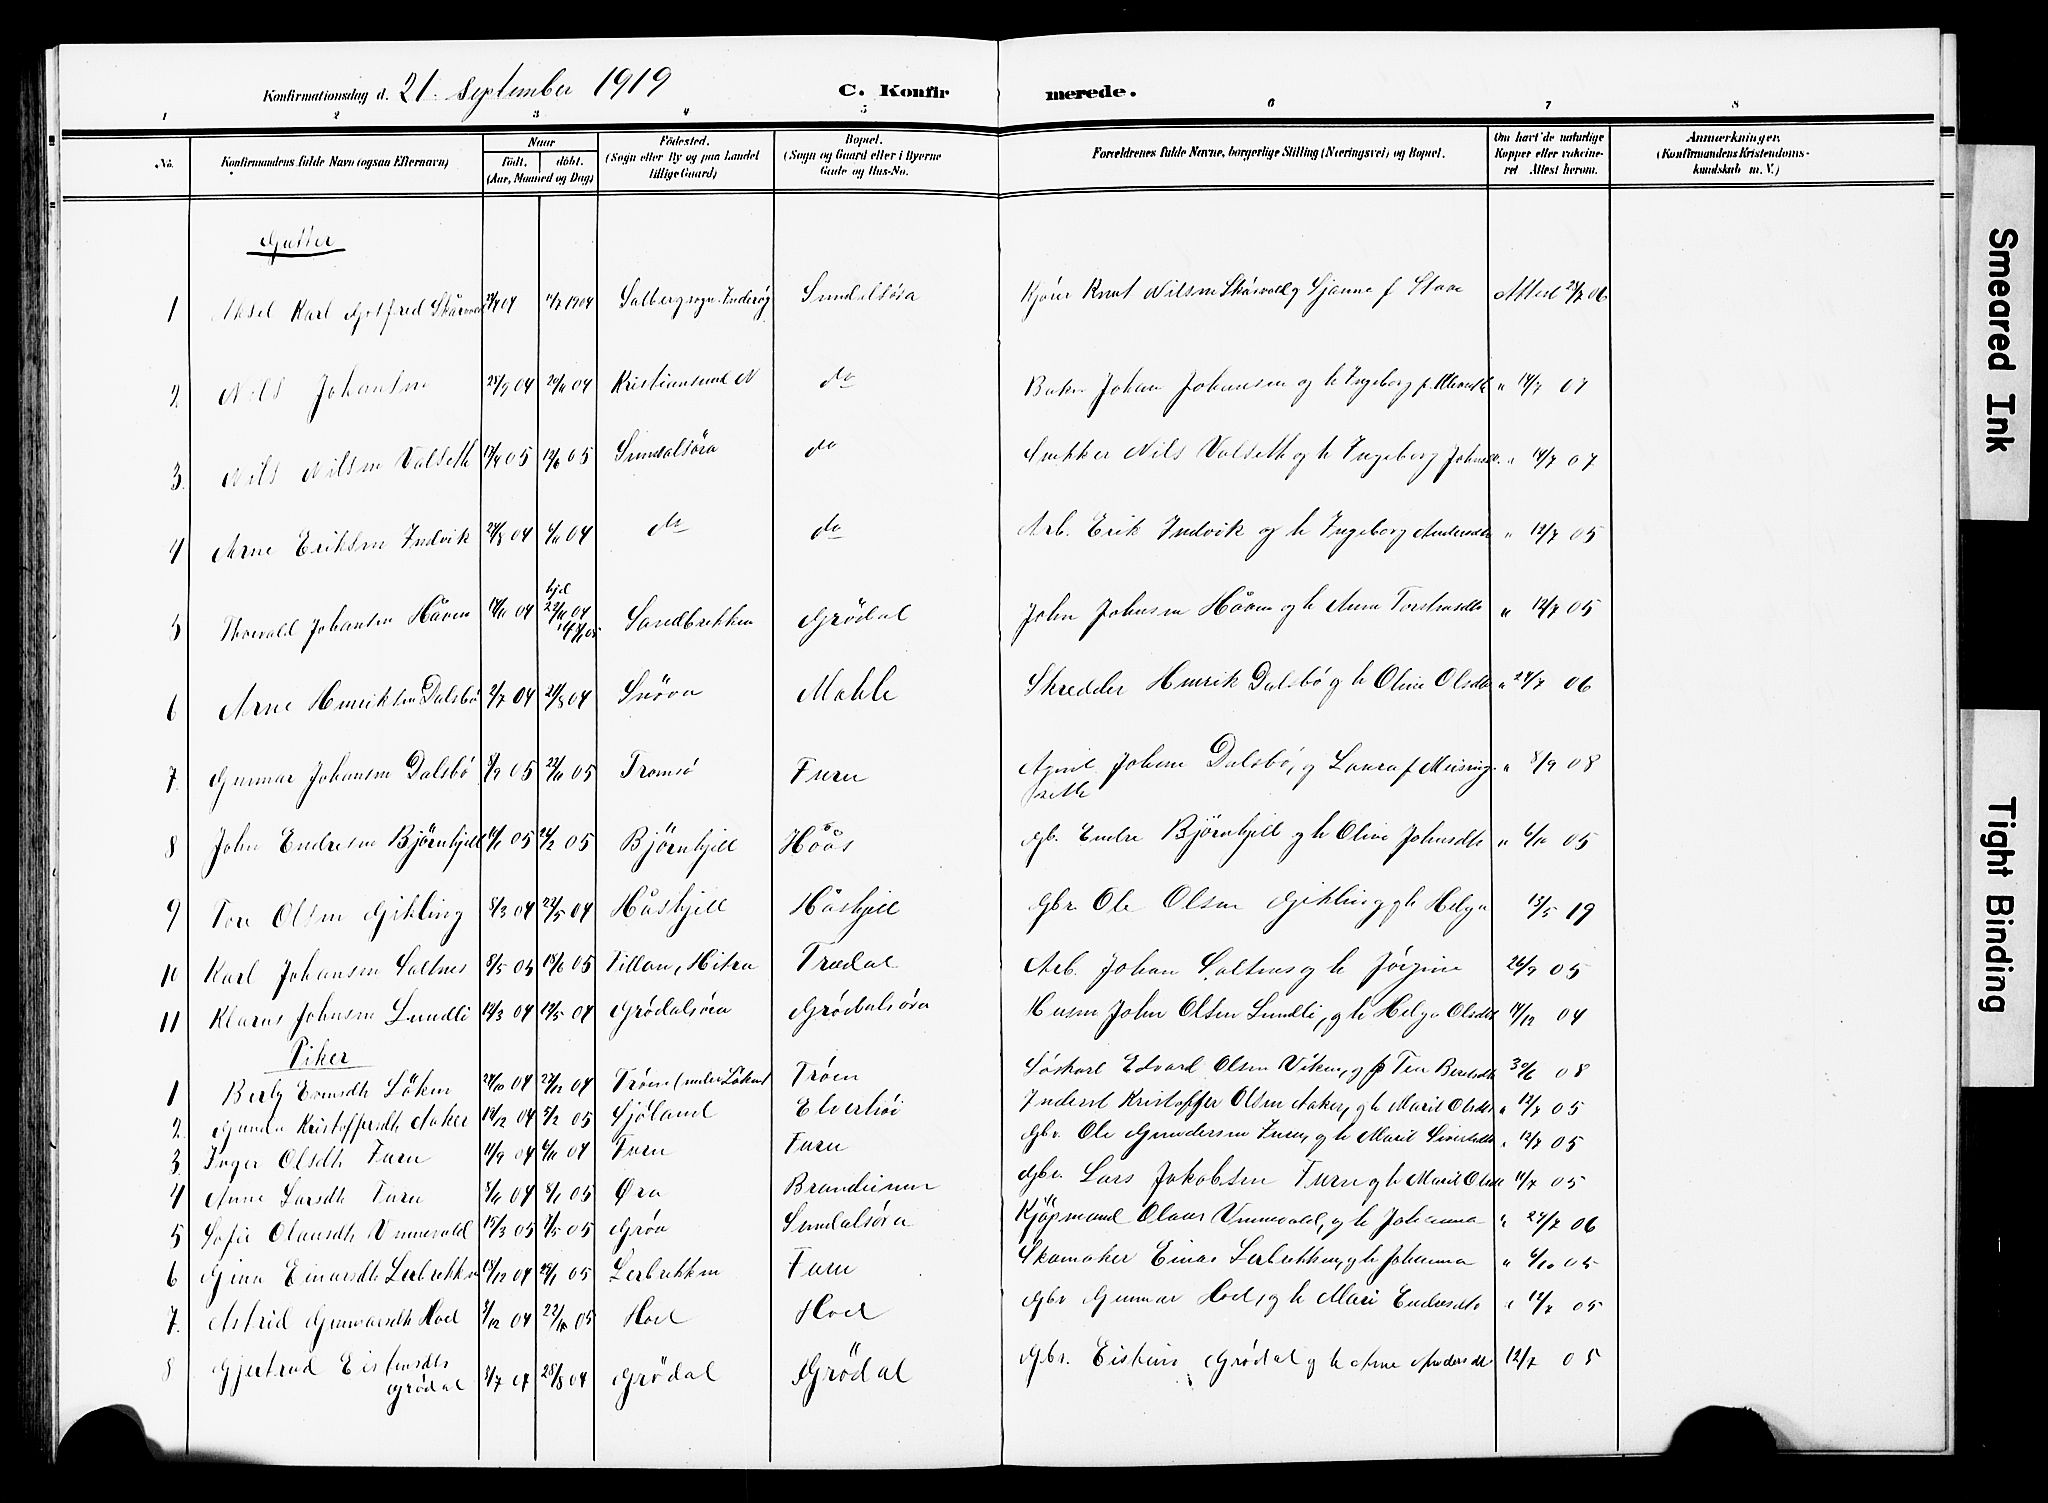 Konfirmationsdag d. 21. September 1919 C. Konfirmerede.
1 2 3 4 5 6 7 8
No. Konfirmandens fulde Navn (ogsaa Efternavn) Naar født. døbt. (Aar, Maaned og Dag) Fødested. (Sogn eller By og paa Landet tillige Gaard) Bopæl. (Sogn og Gaard eller i Byerne Gade og Hus-No. Forældrenes fulde Navne, borgerlige Stilling (Næringsvei) og Bopæl. Om havt de naturlige Kopper eller vakcineret. Attest herom. Anmærkninger. (Konfirmandens Kristendomskundskab m. V.)
Gutter
1 Aksel Karl Gotfred 04 1904 Salberg sogn. Inderøy Sundalsøra Kjører Knut Nilsen Skårvold g Gjanna f. Attest 06
2 Nils Johansen 28/9 04 20/11 04 Kristiansund N do Baker Johan Johansen og h Ingeborg f. " 14/7 07
3. Nils Nilsen Valseth 05 12/6 05 Sundalsøra do Snekker Nils Valseth og h Ingeborg " 14/7 07
4 Arne Eriksen Indvik 04 6/11 04 do do Arb. Erik Indvik og h Ingeborg Andersdt " 12/7 05
5 Thorvald Johansen Håven 04 hjd 22/11 04 Sandbrekken Grødal John Johnsen Håven og h Anna Torsteinsdt " 12/7 05
6 Arne Henriksen Dalsbø 2/7 04 21/8 04 Snøva Mohle Skredder Henrik Dalsbø g h Oline Olsdt " 24/7 06
7. Gunnar Johansen Dalsbø 05 05 Tromsø Furu Agent Johan Dalsbø, g Laura f. Meisingseth " 8/9 08
8 John Endresen Bjørnhjell 05 24/2 05 Bjørnhjell Hoås Gb. Endre Bjørnhjell g h Oline Johnsdt " 6/10 05
9 Tore Olsen Gikling 8/3 04 22/5 04 Håshjell Håshjell Gbr. Ole Olsen Gikling g h Helga 13/5 19
10 Karl Johansen Saltnes 8/5 05 18/6 05 Fillan, Hitra Trædal Arb. Johan Saltnes g h Jørgine 26/9 05
11 Klaus Johnsen Lundli 04 04 Grødalsøra Grødalsøra Husm John Olsen Lundli, g h Helga Olsdt 14/12 04
Piker
1 Berly Evensdt Løken 04 27/12 04 Trøen (under Løken) Trøen Edvard Olsen Viken, g Bersdt 30/6 08
2. Gunda Kristoffersdt Aaker 04 5/2 05 Sjøland Elverhøi Inderst Kristoffer Olsen Aaker, g h Marit Olsdt " 12/7 05
3. Inger Olsdt Furu 11/9 04 6/11 04 Furu Furu Gbr. Ole Gundersen Furu, g h Marit Sivertsdt " 12/7 05
4 Anne Larsdt Furu 8/11 04 8/1 05 Øra Brandeimen Gbr. Lars Jakobsen Furu g h Marit Olsdt 11/7 05
5 Sofie Olausdt Vinnevold 15/3 05 7/5 05 Grøa Sundalsøra Kjøpmand Olaus Vinnevold, g h Johanna " 24/7 06
6 Gina Einarsdt Lerbrekken 04 05 Lerbrekken Furu Skomaker Einar Lerbrekken, g h Johanna " 6/10 05
7. Astrid Gunnarsdt Hoel 04 22/10 05 Hoel Hoel Gbr Gunnar Hoel, g h Mari Endresdt " 12/7 05
8 Gjertrud Eistensdt Grødal 3/7 04 28/8 04 Grødal Grødal Gbr. Eisten Grødal g h Ane Andersdt 12/7 05
Smeared Ink
Tight Binding